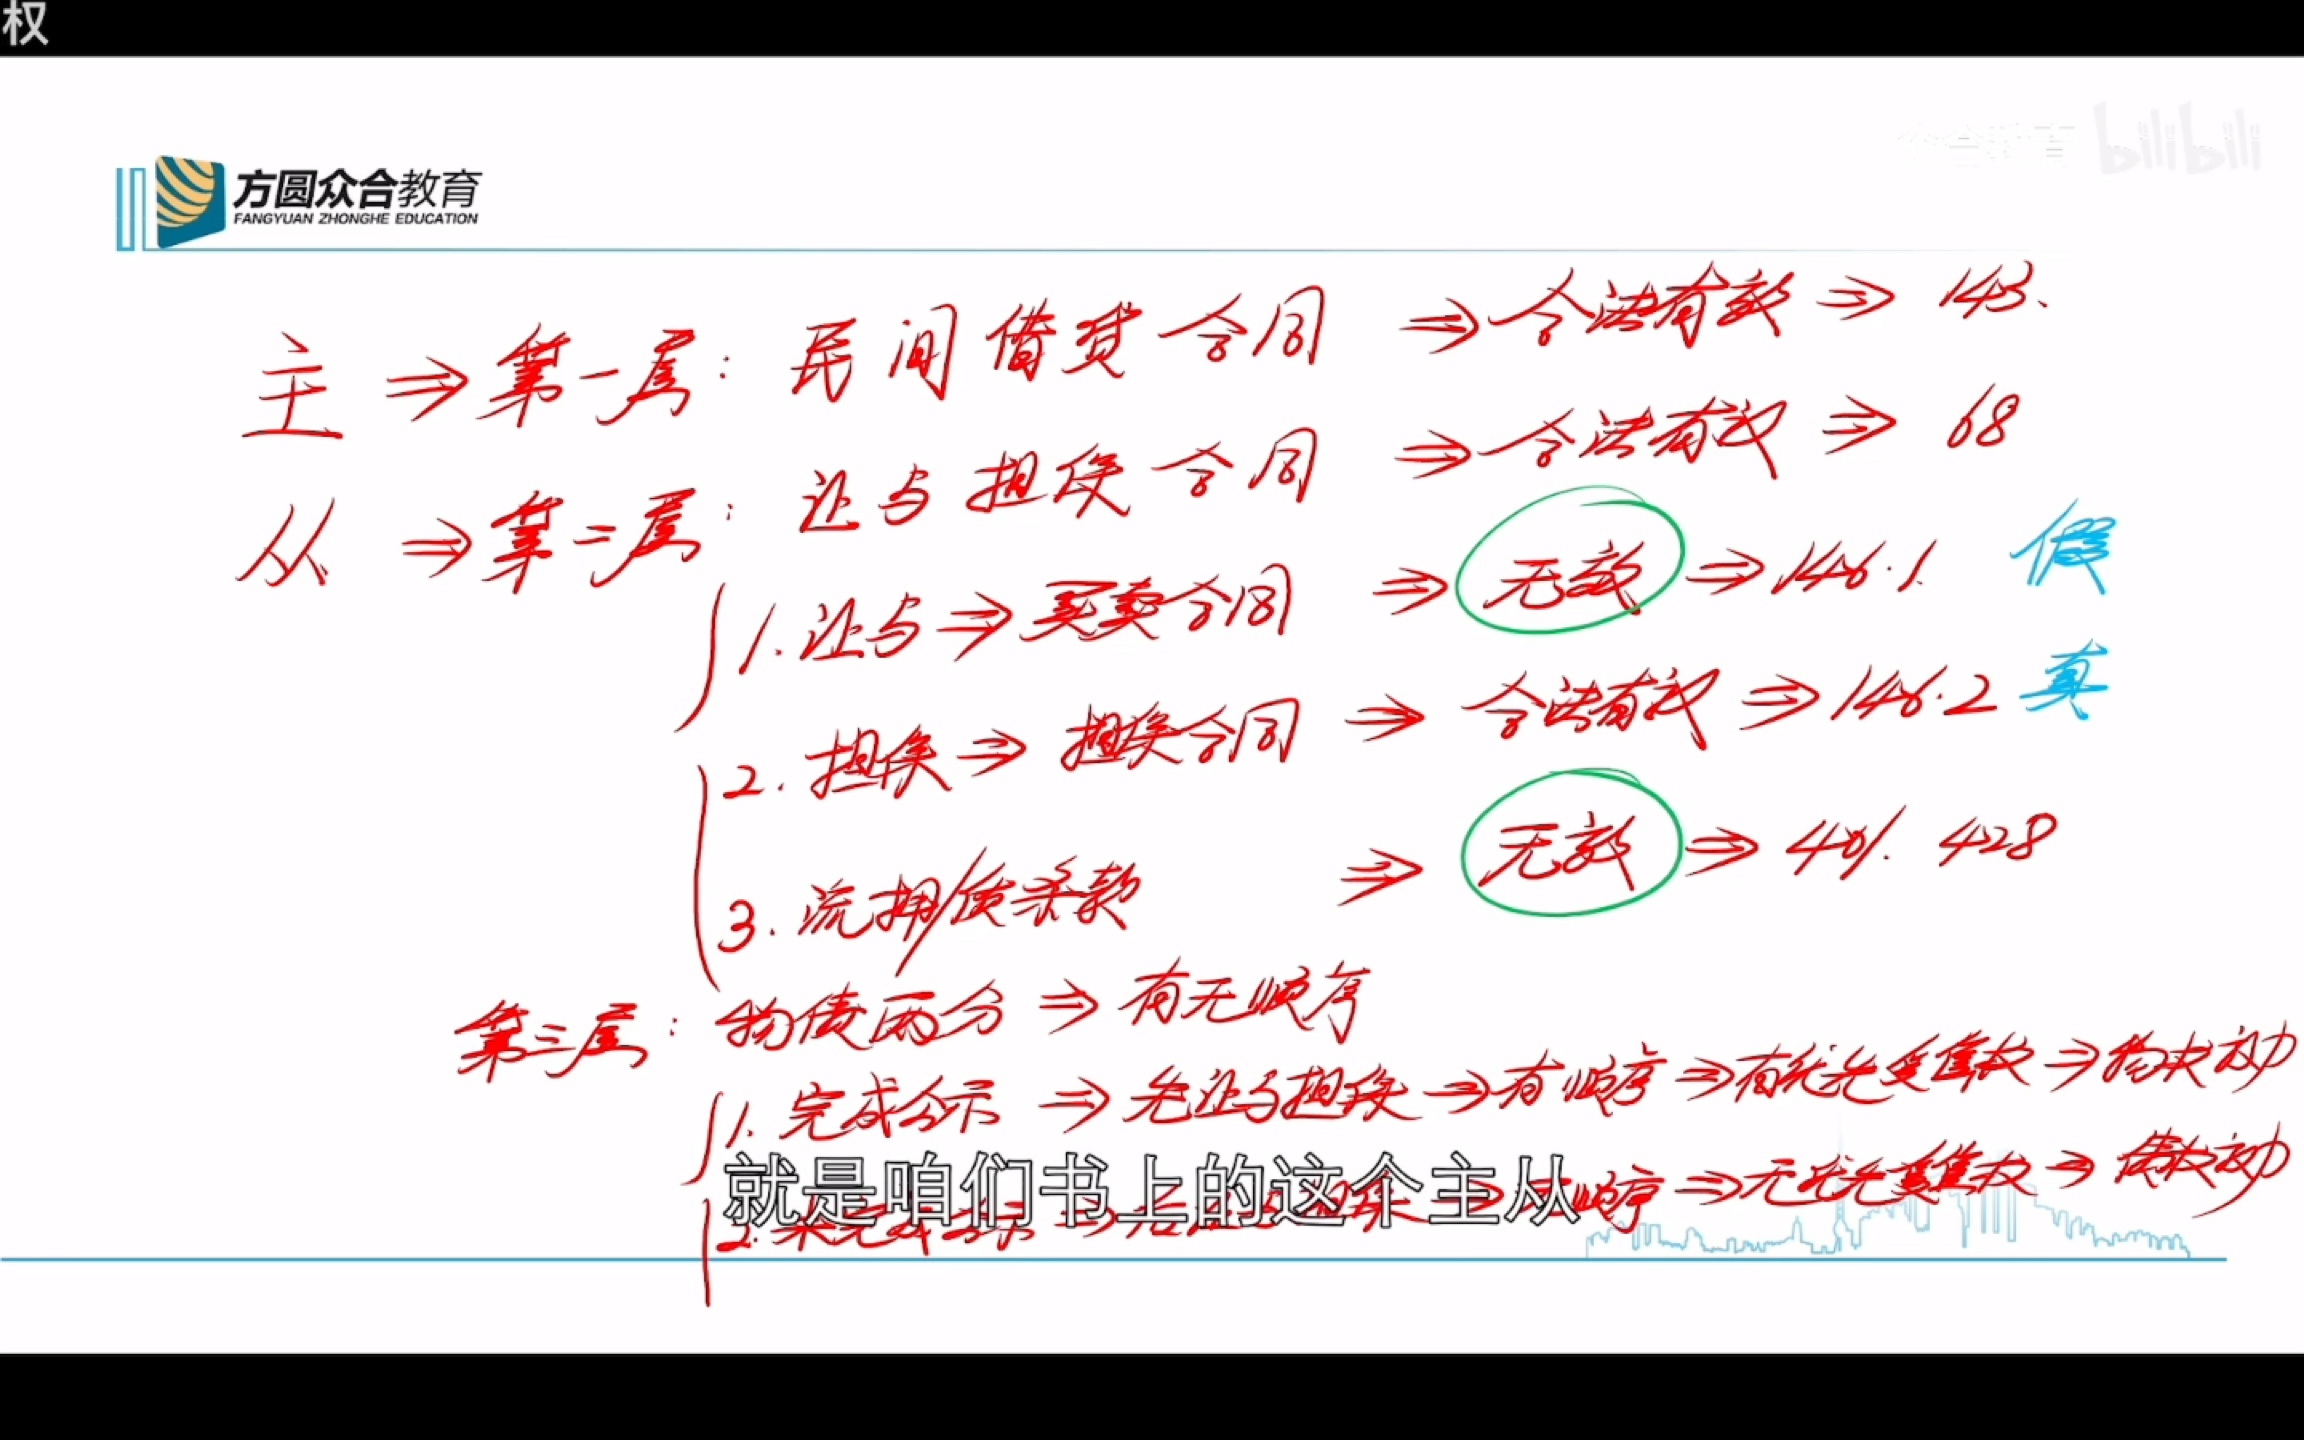 权
众合教育 bilibili
方圆众合教育
FANGYUAN ZHONGHE EDUCATION
主 ⇒ 第一层：民间借贷合同 ⇒ 合法有效 ⇒ 143.
从 ⇒ 第二层：让与担保合同 ⇒ 合法有效 ⇒ 68
1. 让与 ⇒ 买卖合同 ⇒ 无效 ⇒ 146.1. 假
2. 担保 ⇒ 担保合同 ⇒ 合法有效 ⇒ 146.2 真
3. 流押/质条款 ⇒ 无效 ⇒ 401. 428
第三层：物债两分 ⇒ 有无顺序
1. 完成公示 ⇒ 先让与担保 ⇒ 有顺序 ⇒ 有优先受偿权 ⇒ 物权效力
就是咱们书上的这个主从
2. 未完成公示 ⇒ 顺序 ⇒ 无优先受偿权 ⇒ 债权效力